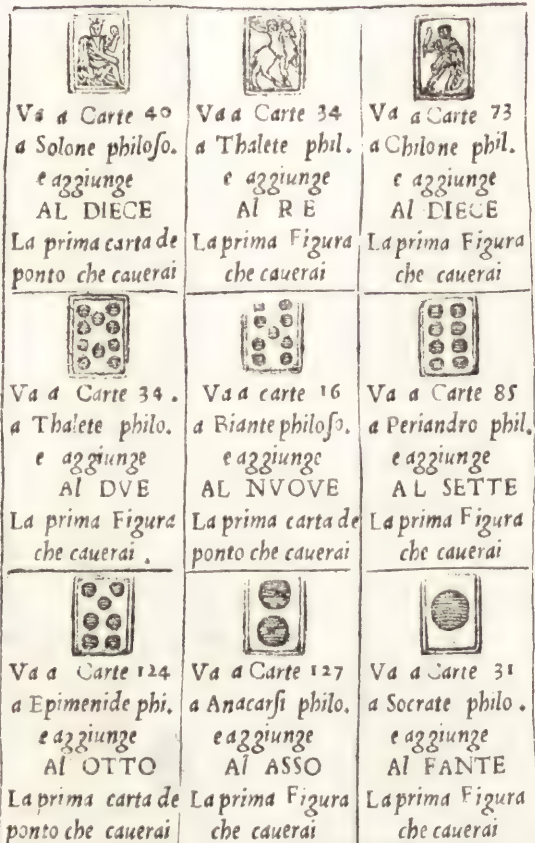 Va a Carte 40
a Solone philoſo.
e aggiunge
AL DIECE
La prima carta de
ponto che cauerai
Va a Carte 34
a Thalete phil.
e aggiunge
Al RE
La prima Figura
che cauerai
Va a Carte 73
a Chilone phil.
e aggiunge
Al DIECE
La prima Figura
che cauerai
Va a Carte 34.
a Thalete philo.
e aggiunge
Al DVE
La prima Figura
che cauerai.
Va a carte 16
a Biante philoſo.
e aggiunge
AL NVOVE
La prima carta de
ponto che cauerai
Va a Carte 85
a Periandro phil.
e aggiunge
AL SETTE
La prima Figura
che cauerai
Va a Carte 124
a Epimenide phi.
e aggiunge
Al OTTO
La prima carta de
ponto che cauerai
Va a Carte 127
a Anacarſi philo.
e aggiunge
Al ASSO
La prima Figura
che cauerai
Va a Carte 31
a Socrate philo.
e aggiunge
Al FANTE
La prima Figura
che cauerai